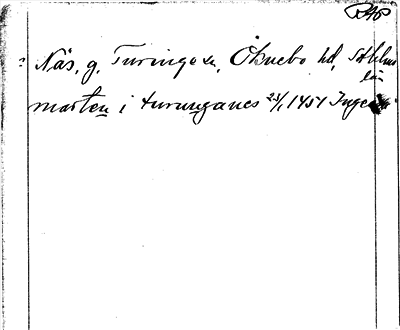 Näs, g. Turinge sn, Öknebo hd, Sthlms
län
marten i turunganes 23/1 1451